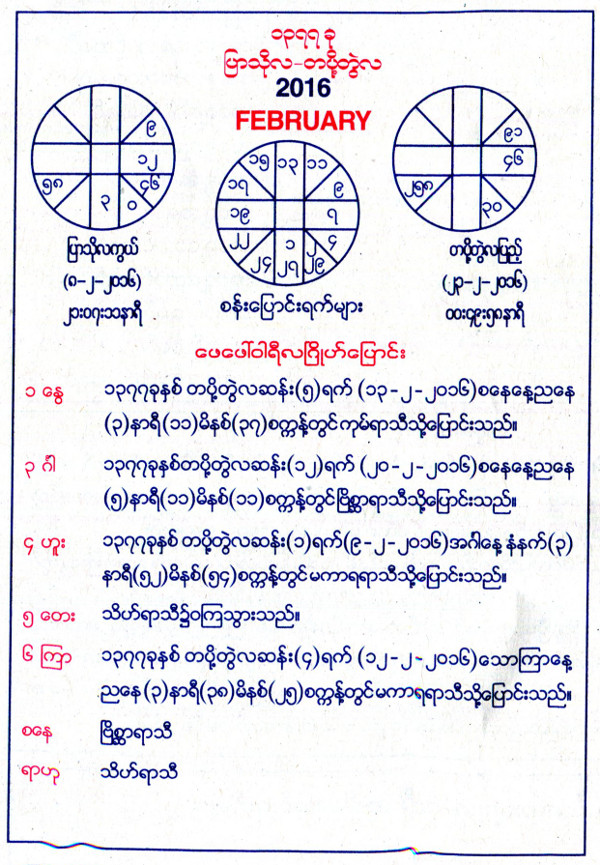 ၁၃၇၇ ခု
ပြာသိုလ-တပို့တွဲလ
2016
FEBRUARY
၉
၁၂
၅၈
၃
၀
၄၆
ပြာသိုလကွယ်
(၈-၂-၂၀၁၆)
၂၁း၀၇း၁၁နာရီ
၁၅
၁၃
၁၁
၁၇
၉
၁၉
၇
၂၂
၁
၂
၄
၂၄
၂၇
၂၉
စန်းပြောင်းရက်များ
၉၁
၄၆
၂၅၈
၃၀
တပို့တွဲလပြည့်
(၂၃-၂-၂၀၁၆)
၀၀း၄၉း၅၈နာရီ
ဖေဖေါ်ဝါရီလဂြိုဟ်ပြောင်း
၁ နွေ ၁၃၇၇ခုနှစ် တပို့တွဲလဆန်း(၅)ရက် (၁၃-၂-၂၀၁၆)စနေနေ့ညနေ
(၃)နာရီ(၁၁)မိနစ်(၃၇)စက္ကန့်တွင်ကုမ်ရာသီသို့ပြောင်းသည်။
၃ ဂါ ၁၃၇၇ခုနှစ်တပို့တွဲလဆန်း(၁၂)ရက် (၂၀-၂-၂၀၁၆)စနေနေ့ညနေ
(၅)နာရီ(၁၁)မိနစ်(၁၁)စက္ကန့်တွင်ဗြိစ္ဆာရာသီသို့ပြောင်းသည်။
၄ ဟူး ၁၃၇၇ခုနှစ် တပို့တွဲလဆန်း(၁)ရက်(၉-၂-၂၀၁၆)အင်္ဂါနေ့ နံနက်(၃)
နာရီ(၅၂)မိနစ်(၅၄)စက္ကန့်တွင်မကာရရာသီသို့ပြောင်းသည်။
၅ တေး သိဟ်ရာသီ၌ဝကြသွားသည်။
၆ ကြာ ၁၃၇၇ခုနှစ် တပို့တွဲလဆန်း(၄)ရက် (၁၂-၂-၂၀၁၆)သောကြာနေ့
ညနေ(၃)နာရီ(၃၈)မိနစ်(၂၅)စက္ကန့်တွင်မကာရရာသီသို့ပြောင်းသည်။
စနေ ဗြိစ္ဆာရာသီ
ရာဟု သိဟ်ရာသီ